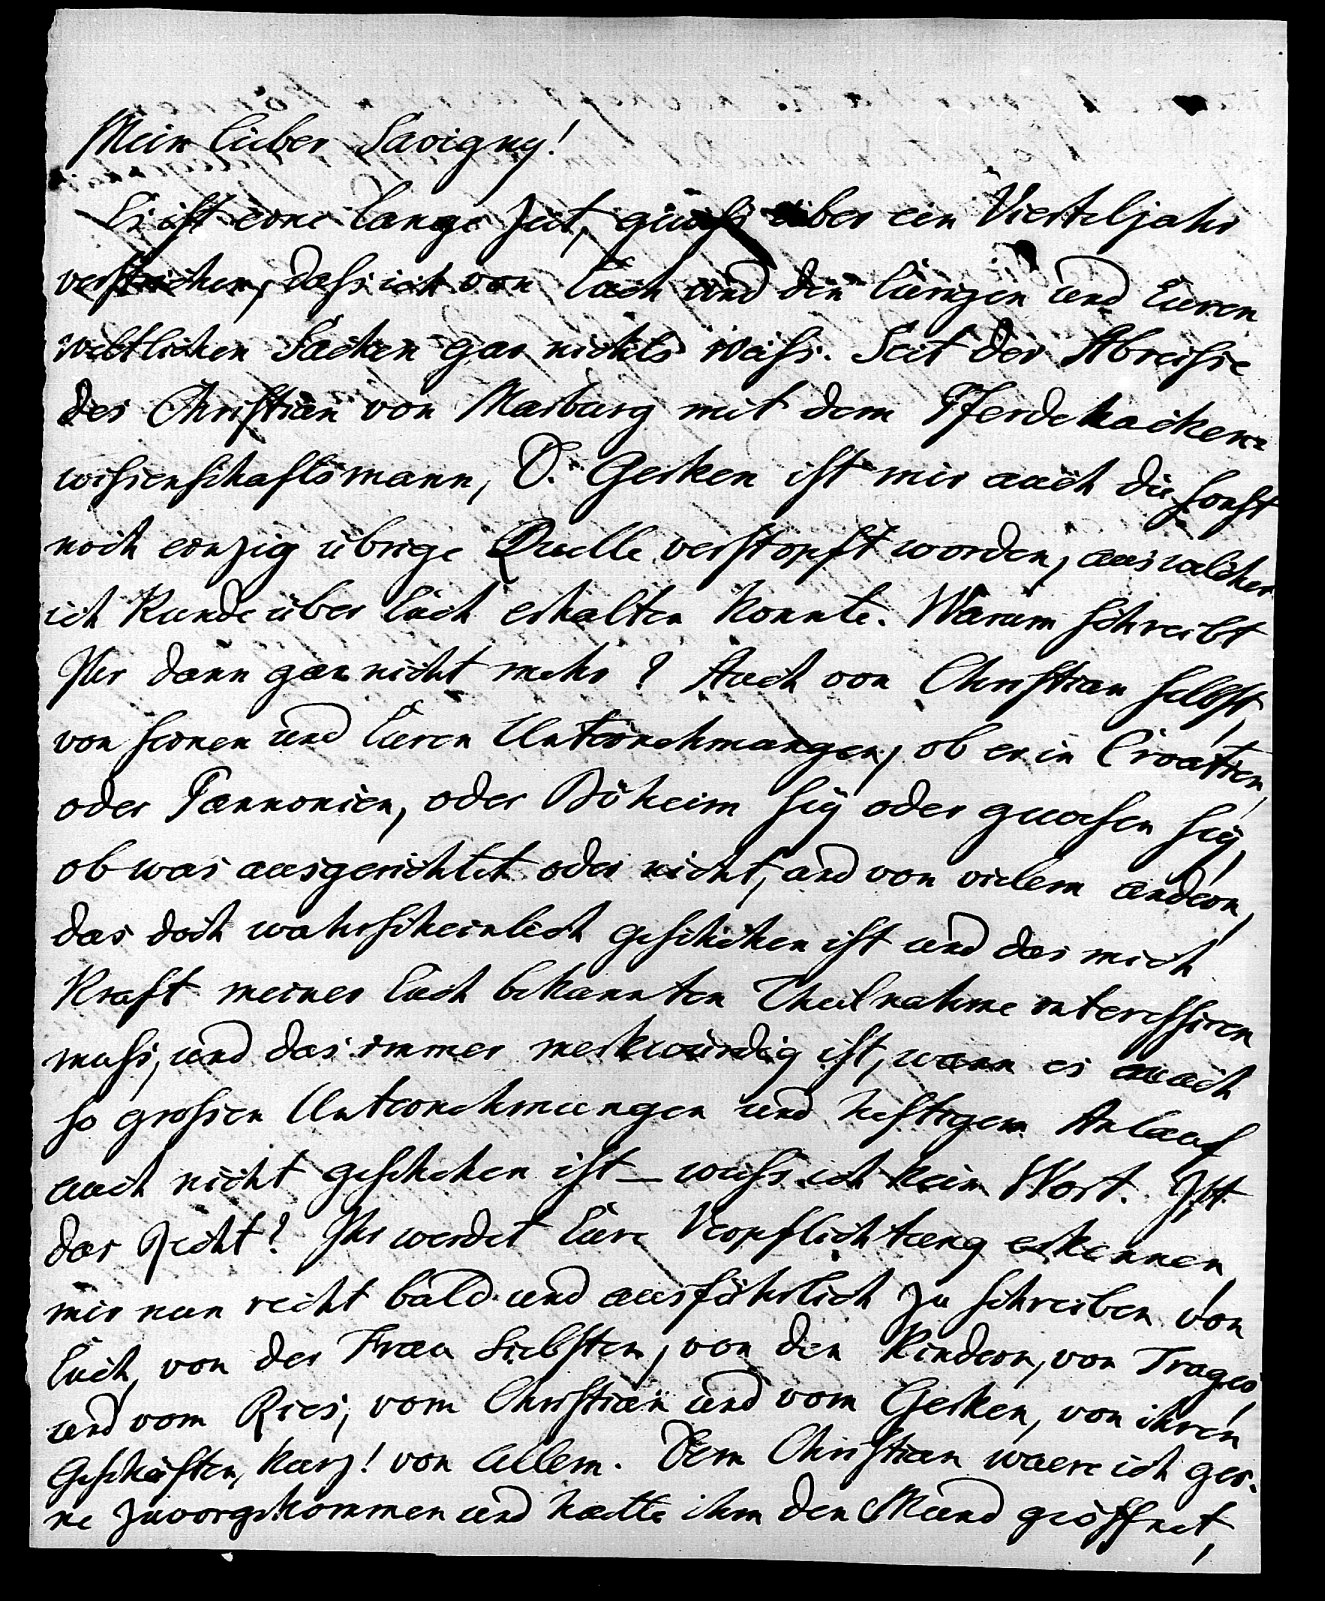 Mein lieber Savigny!
Es ist eine lange Zeit, gewiß über ein Vierteljahr
verstrichen, daß ich von Euch und den Eurigen und Euren
weltlichen Sachen gar nichts weiß. Seit der Abreise
des Christian von Marburg mit dem Pferdeknochen-
wissenschaftsmann, D. Gerken ist mir auch die sonst
noch einzig übrige Quelle verstopft worden, aus welcher
ich Kunde über Euch erhalten konnte. Warum schreibt
Ihr dann gar nicht mehr? Auch von Christian selbst,
von seinen und Euren Unternehmungen, ob er in Croatien,
oder Pannonien, oder Böheim sey oder gewesen sey,
ob was ausgerichtet oder nicht, und von vielem andern,
das doch wahrscheinlich geschehen ist und das mich
Kraft meiner Euch bekannten Theilnahme interessiren
muß, und das immer merkwürdig ist, wenn es auch
so großen Unternehmungen und heftigem Anlauf
auch nicht geschehen ist — weiß ich kein Wort. Ist
das recht? Ihr werdet Eure Verpflichtung erkennen
mir nun recht bald und ausführlich zu schreiben von
Euch, von der Frau Liebsten, von den Kindern, von Trages
und vom Ries, vom Christian und vom Gerken, von ihren
Geschäften, kurz! von allem. Dem Christian waere ich ger-
ne zuvorgekommen und haette ihm den Mund geöffnet,